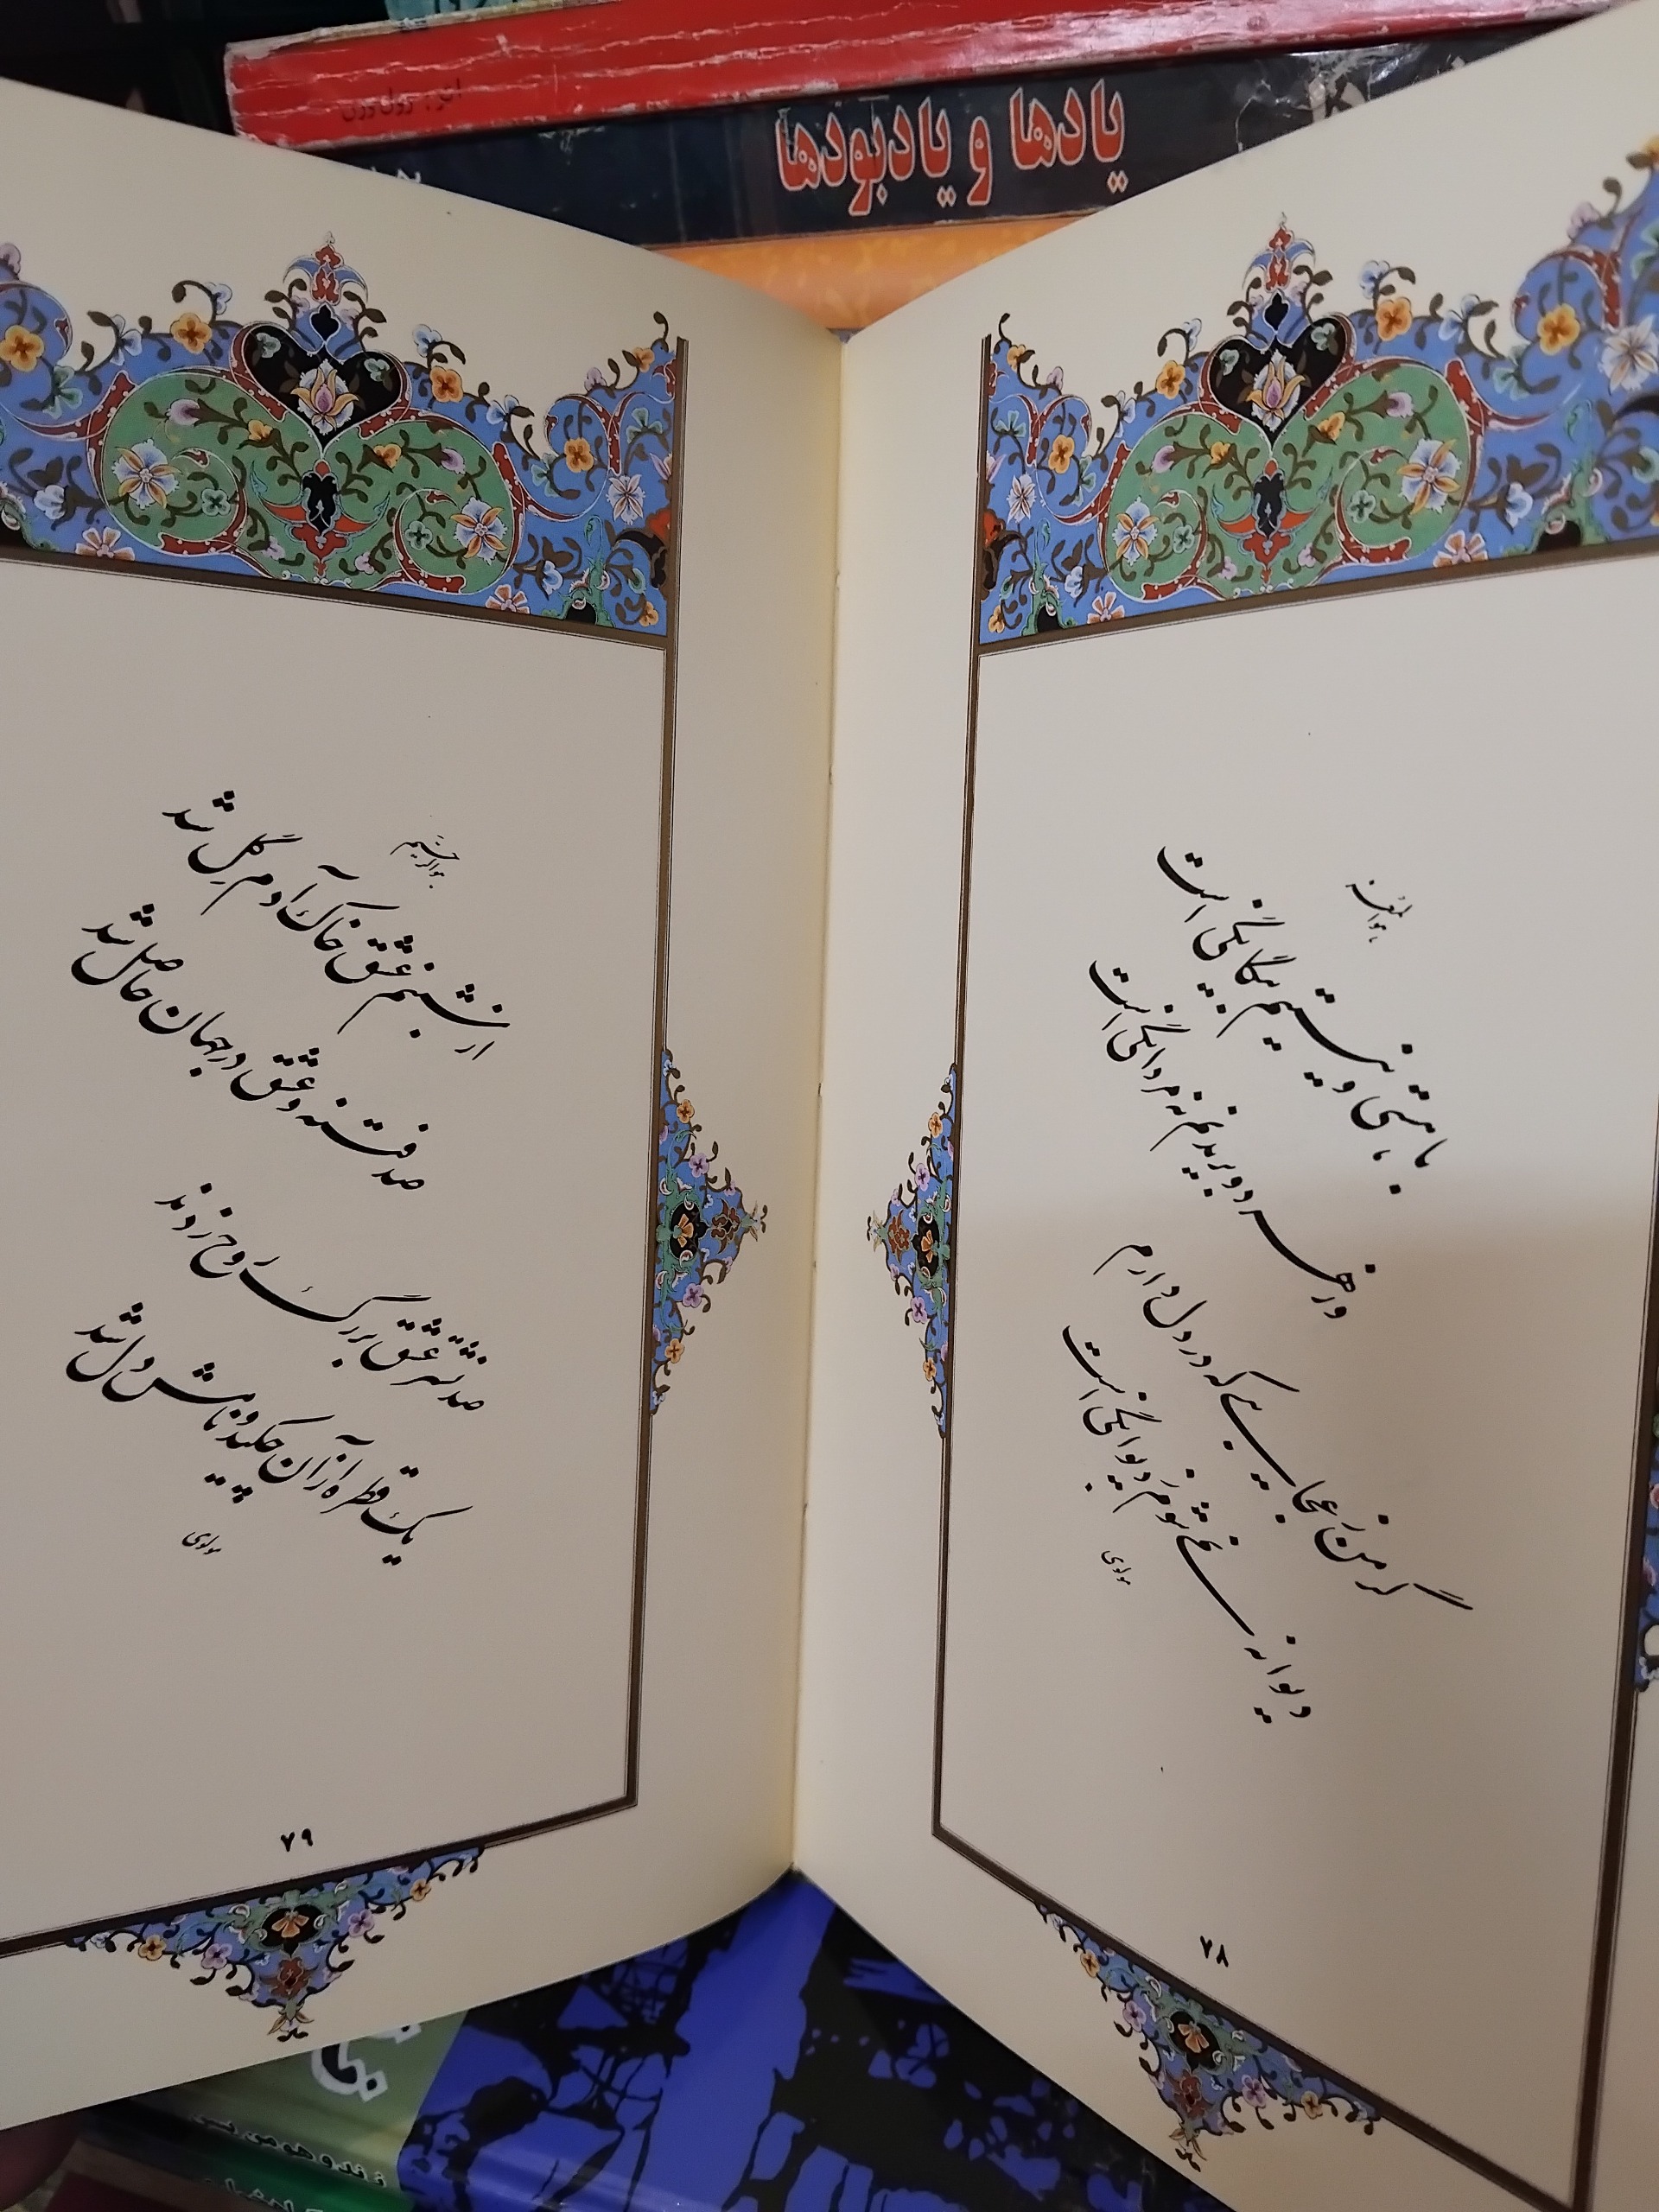 یادها و یادبودها
هوالمعز
با هستی و نیستیم بیگانگی است
وز هر دو بریدنم نه مردانگی است
گر من ز عجایبی که در دل دارم
دیوانه نمی‌شوم ز دیوانگی است
مولوی
۷۸
هوالرحیم
از شبنم عشق خاک آدم گل شد
صد فتنه و عشق در جهان حاصل شد
صد نشتر عشق بر رگ روح زدند
یک قطره از آن چکید و نامش دل شد
مولوی
۷۹